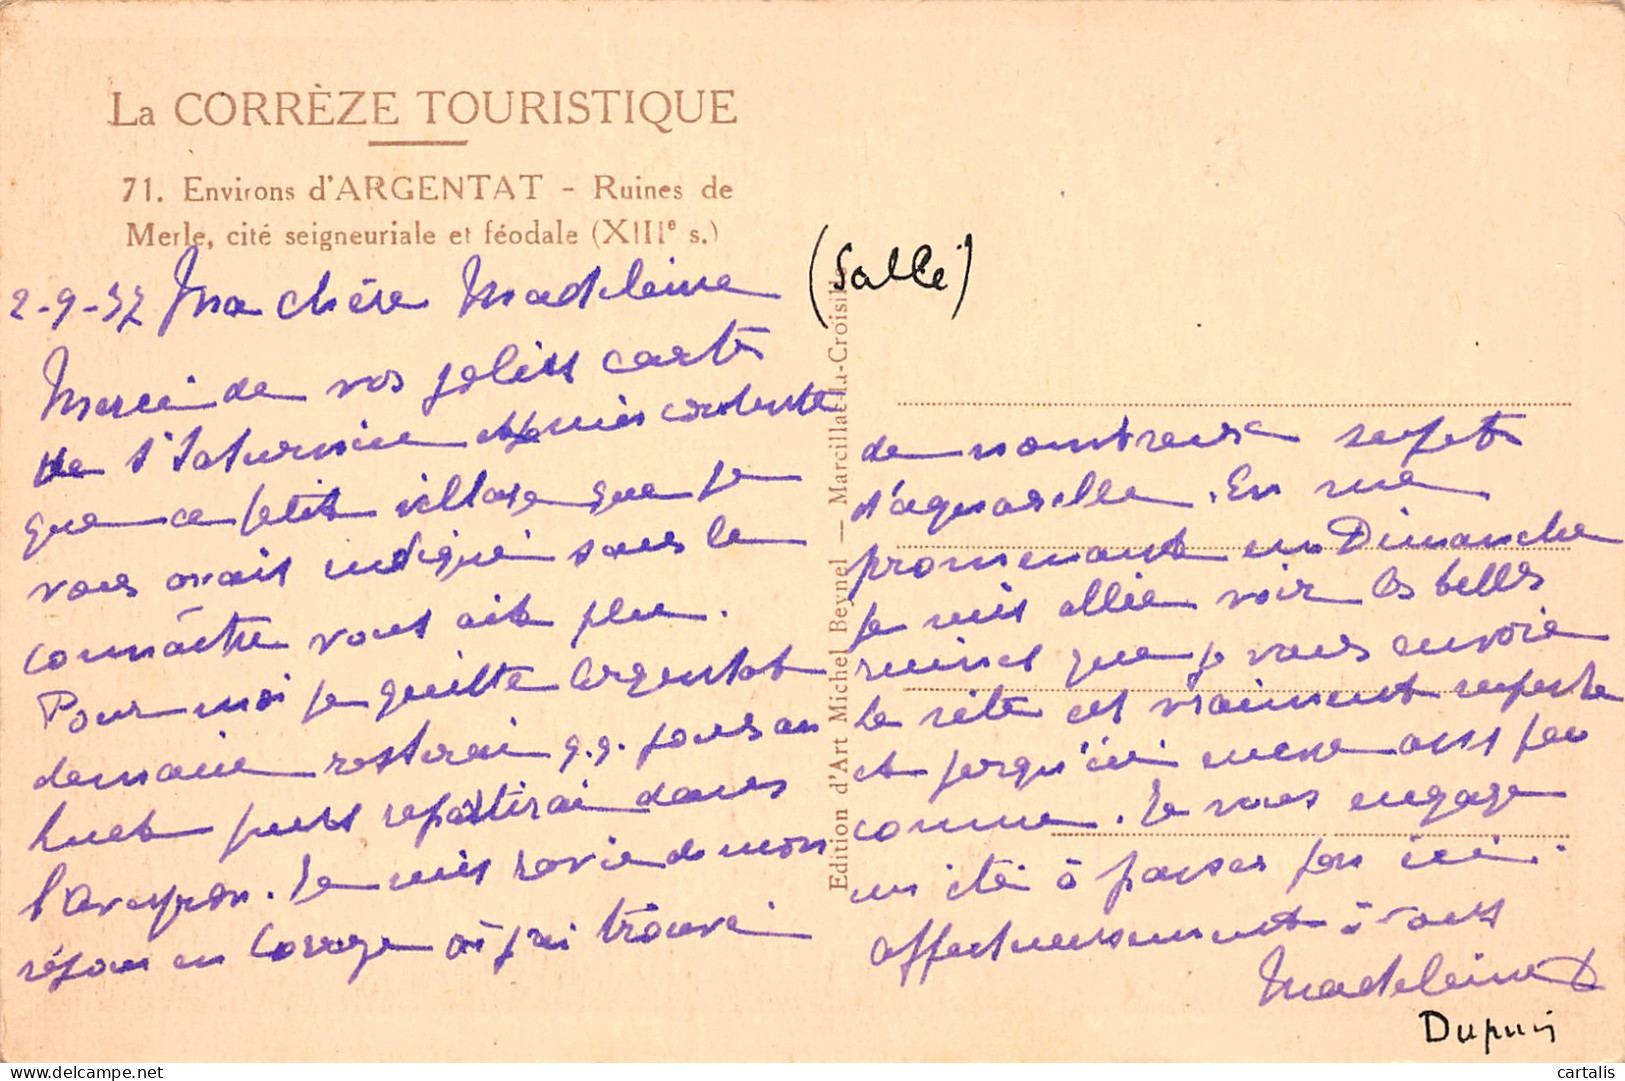 La CORRÈZE TOURISTIQUE
71. Environs d'ARGENTAT - Ruines de
Merle, cité seigneuriale et féodale (XIIIe s.)
2-9-37 Ma chère Madeleine
(Sallé)
Merci de vos jolies carte
de suis contente
que ce petit village que je
vous avais indiqué sans le
connaître vous ait plu.
Pour moi je quitte Argentat
demain resterai q.q. jours au
puis repartirai dans
l'Aveyron. Je suis ravie de mon
séjour en Corrèze où j'ai trouvé
Edition d'Art Michel Beynel — Marcillac-la-Croisille
de nombreux sujets
d'aquarelle. En me
promenant un Dimanche
je suis allée voir les belles
ruines que je vous envoie
le site est vraiment superbe
et jusqu'ici assez peu
connu. Je vous engage
un été à passer par ici.
affectueusement à vous
Madeleine D
Dupuis
cartalis